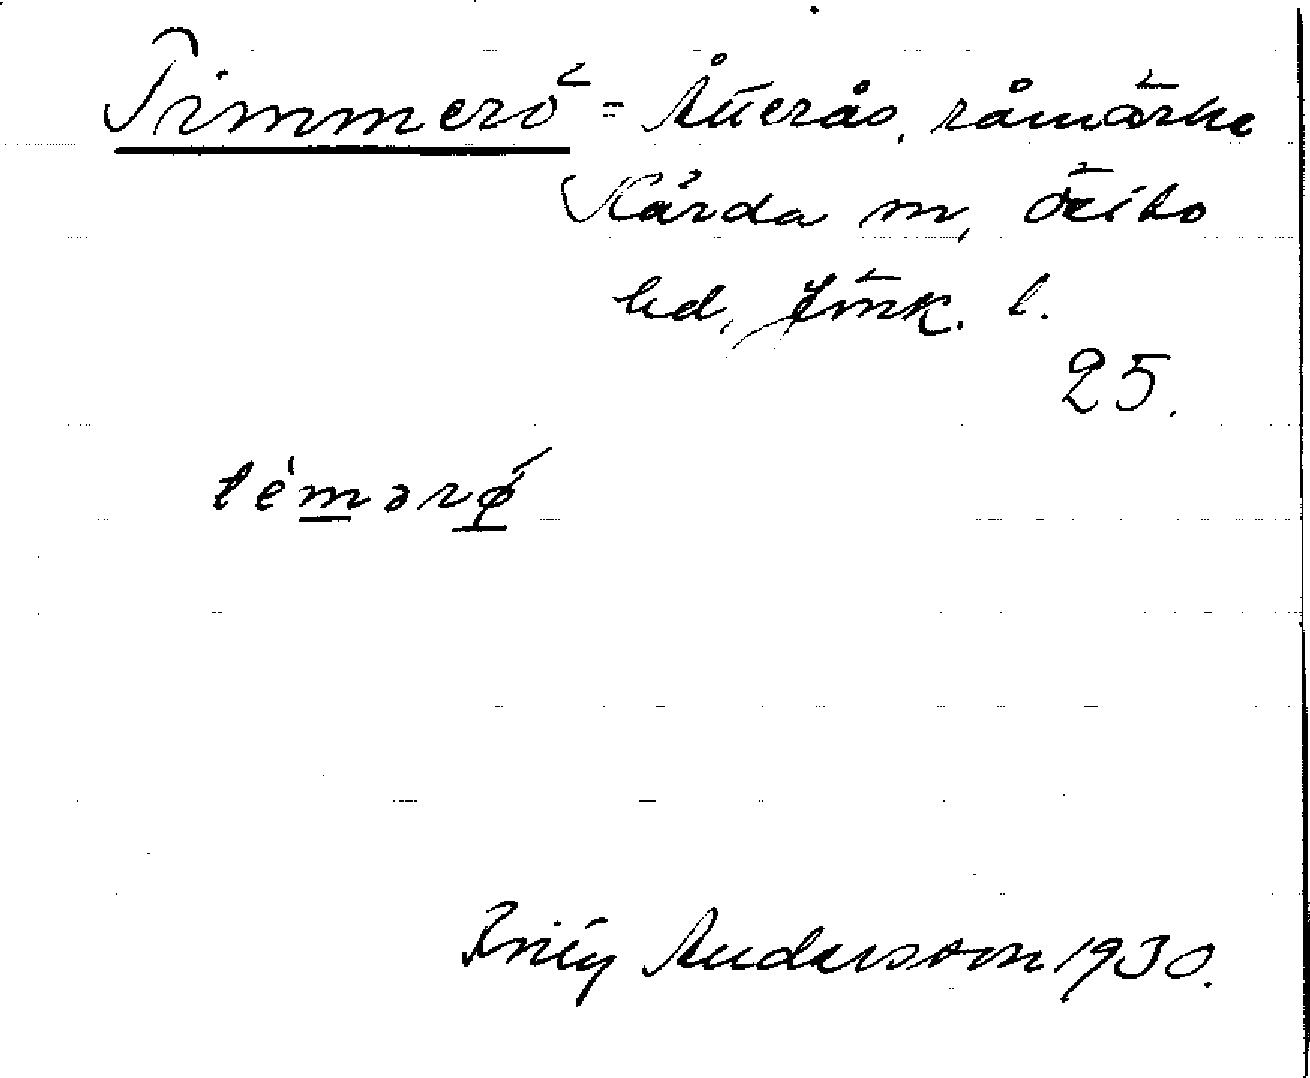 Timmerö = Åuerås, råmärke
Kårda m, Östbo
hd, Jönk. l.
25.
témərø
Andersson 1930.